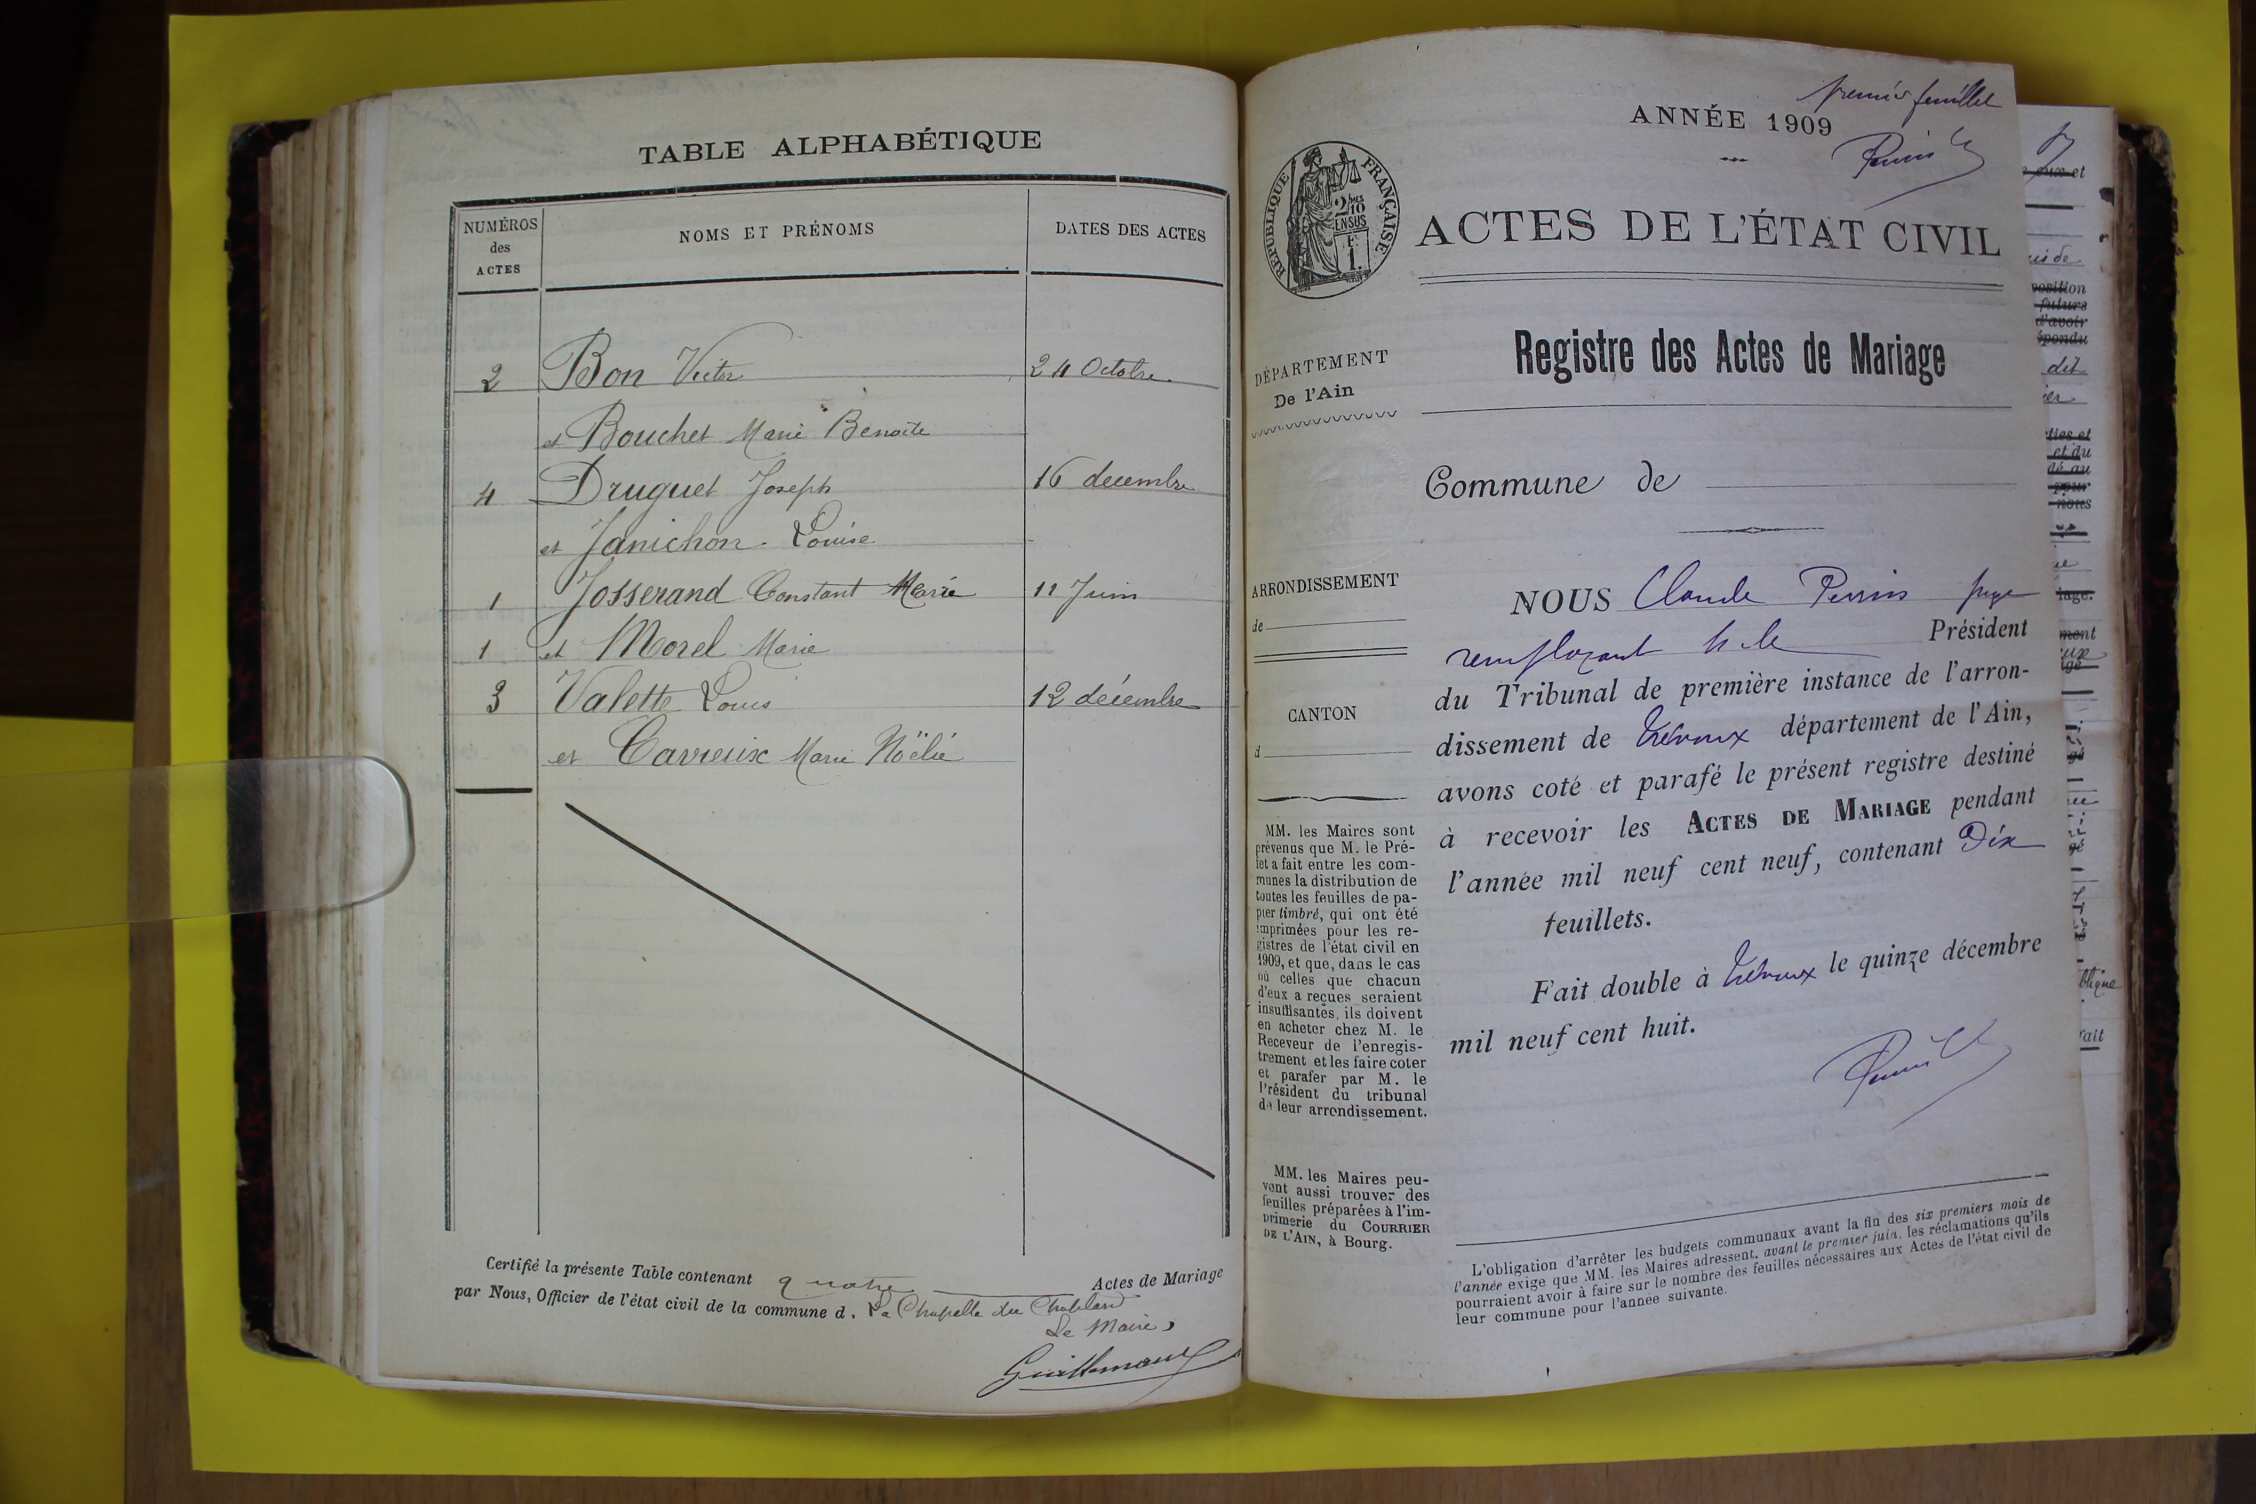 TABLE ALPHABÉTIQUE
NUMÉROS
des
ACTES
NOMS ET PRÉNOMS
DATES DES ACTES
2 Bon Victor 24 Octobre
et Bouchet Marie Benoite
4 Druguet Joseph 16 decembre
et Janichon Louise
1 Josserand Constant Marie 11 Juin
1 et Morel Marie
3 Valette Louis 12 décembre
et Cavreux Marie Noëlie
Certifié la présente Table contenant quatre Actes de Mariage
par Nous, Officier de l'état civil de la commune d. La Chapelle du Chatelard
Le Maire,
premier feuillet
ANNÉE 1909
RÉPUBLIQUE FRANÇAISE
ACTES DE L'ÉTAT CIVIL
Registre des Actes de Mariage
DÉPARTEMENT
De l'Ain
Commune de
ARRONDISSEMENT
de
CANTON
d
NOUS Claude Perrin juge
remplaçant M le Président
du Tribunal de première instance de l'arron-
dissement de Trévoux département de l'Ain,
avons coté et parafé le présent registre destiné
à recevoir les ACTES DE MARIAGE pendant
l'année mil neuf cent neuf, contenant Dix
feuillets.
Fait double à Trévoux le quinze décembre
mil neuf cent huit.
MM. les Maires sont
prévenus que M. le Pré-
fet a fait entre les com-
munes la distribution de
toutes les feuilles de pa-
pier timbré, qui ont été
imprimées pour les re-
gistres de l'état civil en
1909, et que, dans le cas
où celles que chacun
d'eux a reçues seraient
insuffisantes, ils doivent
en acheter chez M. le
Receveur de l'enregis-
trement et les faire coter
et parafer par M. le
Président du tribunal
de leur arrondissement.
MM. les Maires peu-
vent aussi trouver des
feuilles préparées à l'im-
primerie du COURRIER
DE L'AIN, à Bourg.
L'obligation d'arrêter les budgets communaux avant la fin des six premiers mois de
l'année exige que MM. les Maires adressent, avant le premier juin, les réclamations qu'ils
pourraient avoir à faire sur le nombre des feuilles nécessaires aux Actes de l'état civil de
leur commune pour l'année suivante.